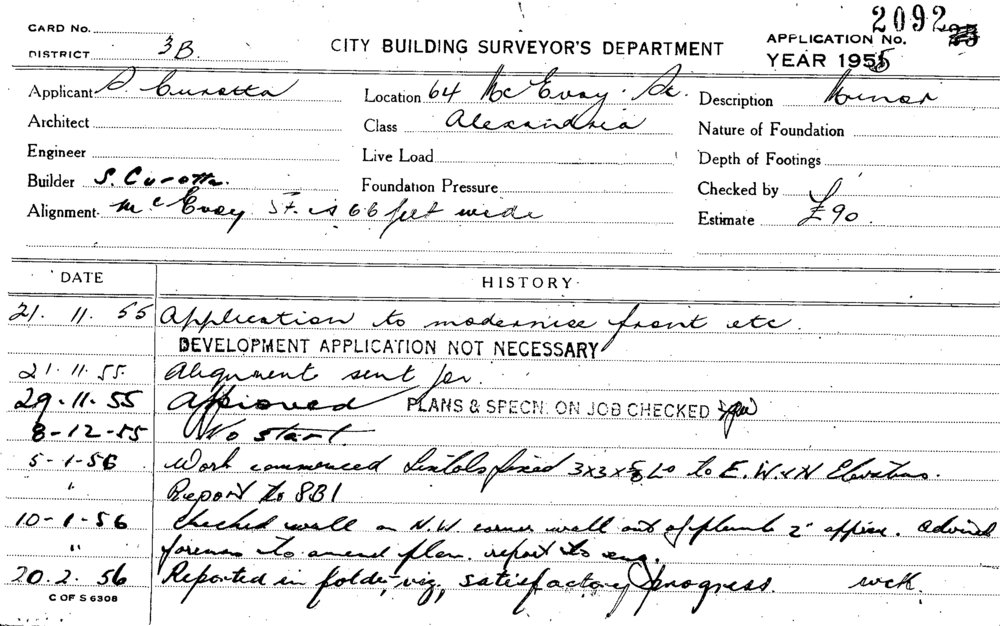 2092
CARD No.
DISTRICT 3B.
CITY BUILDING SURVEYOR'S DEPARTMENT
APPLICATION No.
YEAR 1955
Applicant S. Curotta
Location 64 McEvoy St.
Description Minor
Architect
Class Alexandria
Nature of Foundation
Engineer
Live Load
Depth of Footings
Builder S. Curotta.
Foundation Pressure
Checked by
Alignment McEvoy St. is 66 feet wide
Estimate £90.
DATE HISTORY
21. 11. 55 Application to modernise front etc.
DEVELOPMENT APPLICATION NOT NECESSARY
21.11.55 Alignment sent for.
29.11.55 Approved PLANS & SPECN. ON JOB CHECKED
8-12-55 No start.
5-1-56 Work commenced Lintols fixed 3x3x3/8 Ls to E. W. & N Elevations.
" Report to 8B1
10-1-56 Checked wall on N.W. corner wall out of plumb 2" approx. advised
" foreman to amend plan. report to eng.
20.2.56 Reported in folder, viz, satisfactory progress. WCK.
C OF S 6308